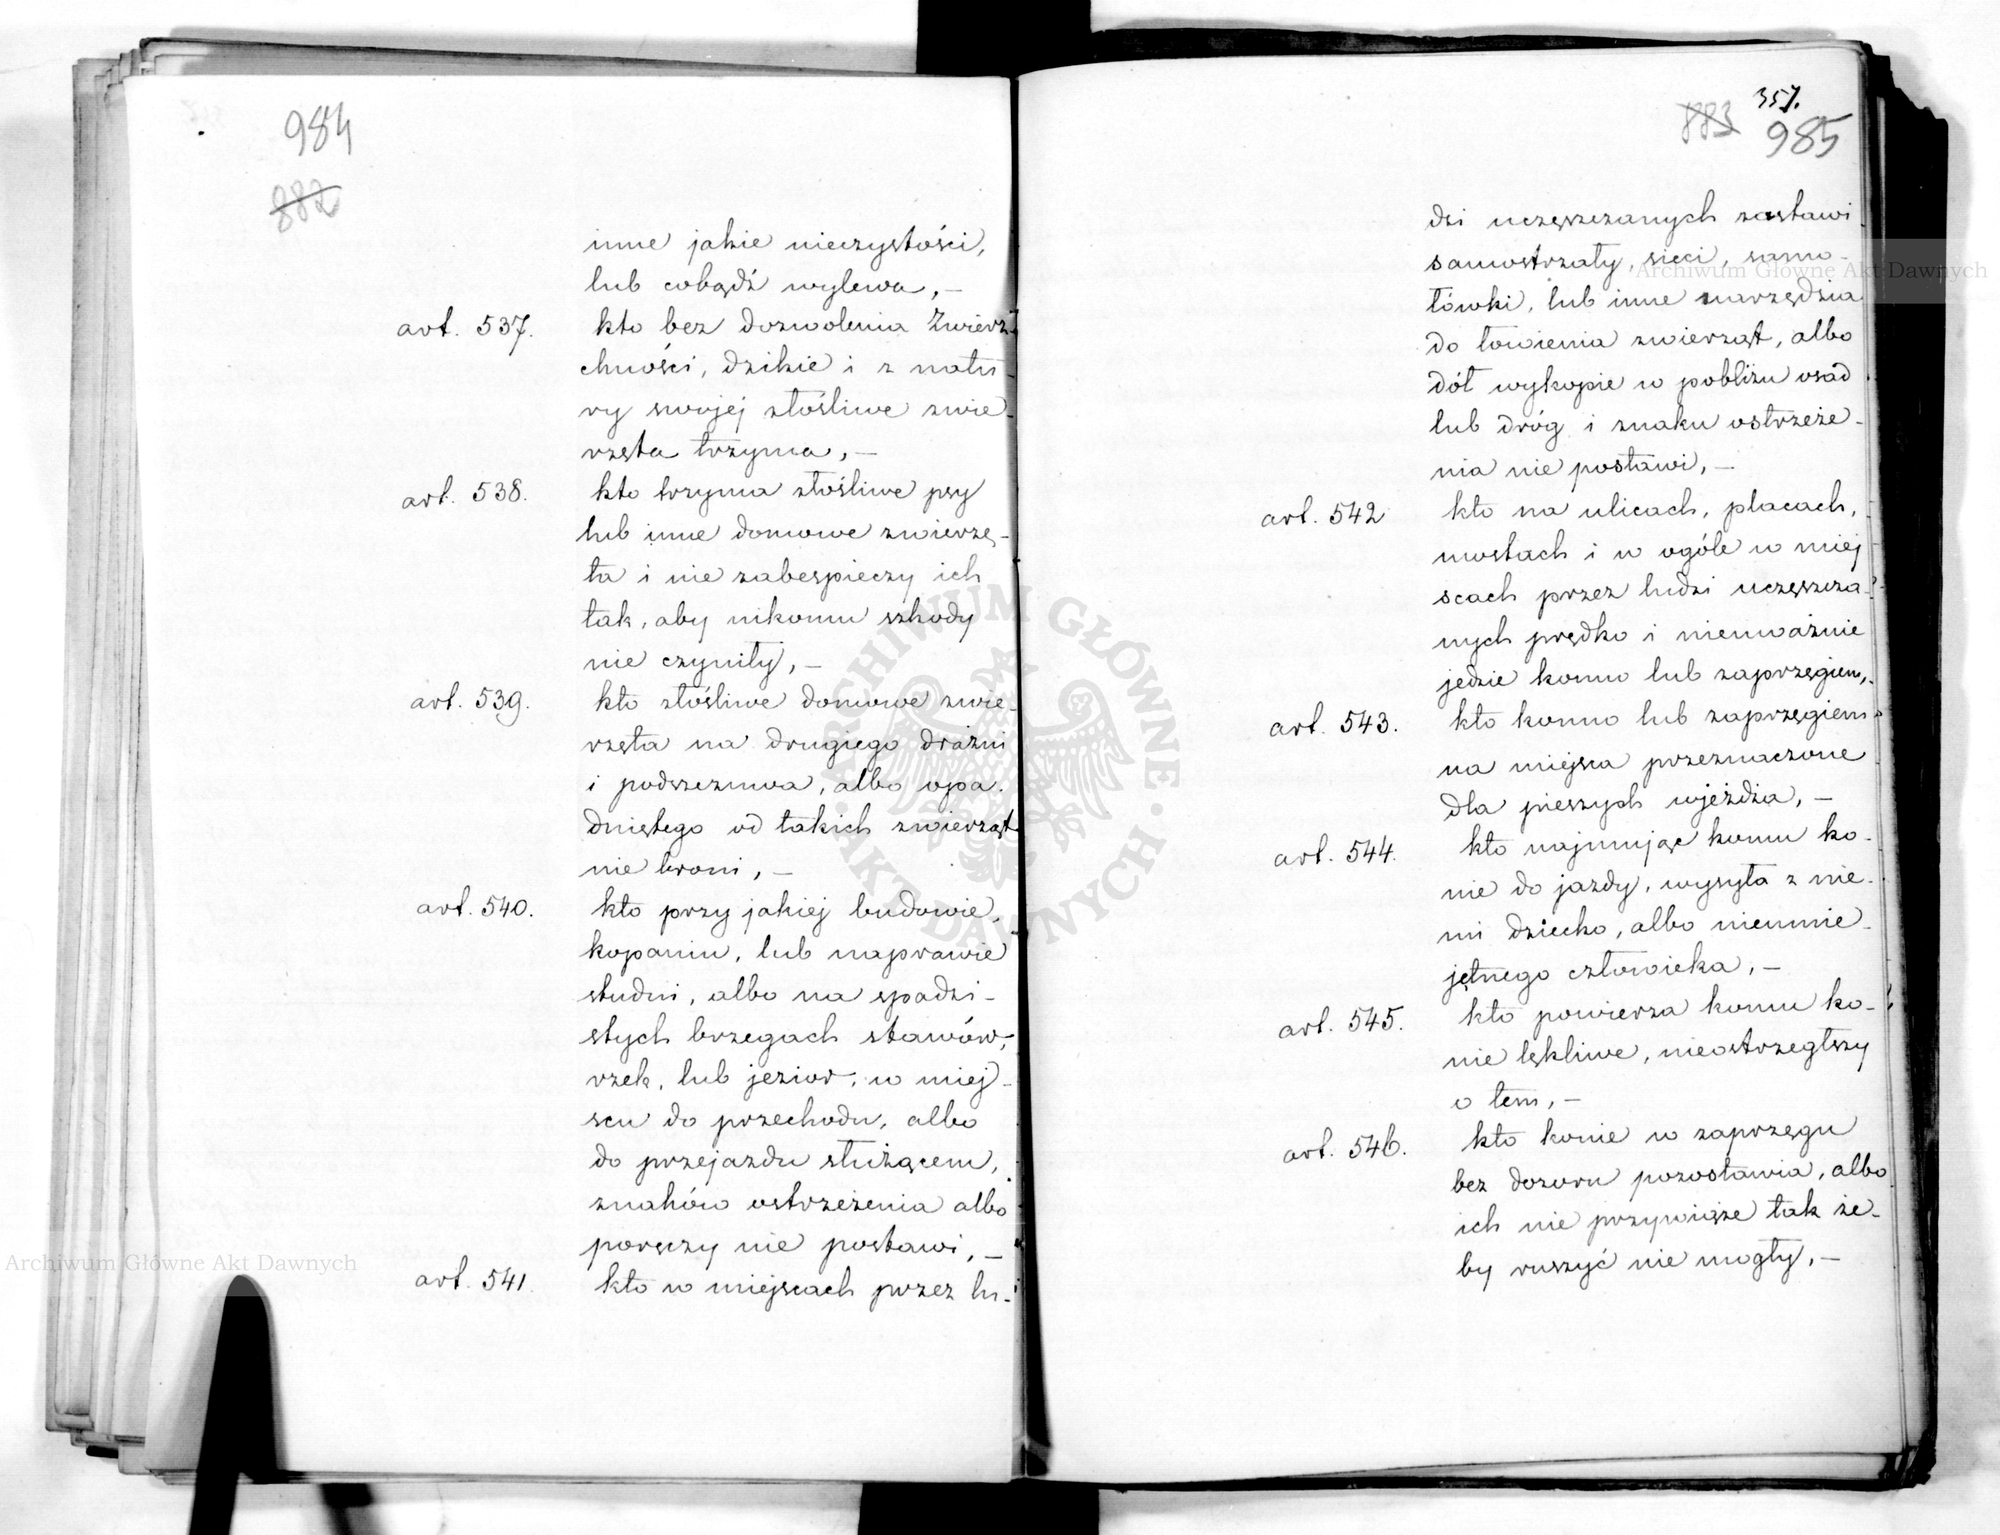 984
882
inne jakie nieczystości,
lub cobądź wylewa, –
art. 537. kto bez dozwolenia Zwierz-
chności, dzikie i z natu
ry swojej złośliwe zwie-
rzęta trzyma, –
art. 538. kto trzyma złośliwe psy
lub inne domowe zwierzę-
ta i nie zabespieczy ich
tak, aby nikomu szkody
nie czyniły, –
art. 539. kto złośliwe domowe zwie-
rzęta na drugiego drażni
i podszczuwa, albo opa-
dniętego od takich zwierząt
nie broni, –
art. 540. kto przy jakiej budowie,
kopaniu, lub naprawie
studni, albo na spadzi-
stych brzegach stawów,
rzek, lub jezior, w miej-
scu do przechodu, albo
do przejazdu służącem,
znaków ostrzeżenia albo
poręczy nie postawi, –
art. 541. kto w miejscach przez lu-
357.
883 985
dzi uczęszczanych zastawi
samostrzały, sieci, samo-
łówki, lub inne narzędzia
do łowienia zwierząt, albo
dół wykopie w pobliżu osad
lub dróg i znaku ostrzeże-
nia nie postawi, –
art. 542 kto na ulicach, placach,
mostach i w ogóle w miej
scach przez ludzi uczęszcza-
nych prędko i nieuważnie
jedzie konno lub zaprzęgiem,
art. 543. kto konno lub zaprzęgiem
na miejsca przeznaczone
dla pieszych wjeżdża, –
art. 544. kto najmując komu ko-
nie do jazdy, wysyła z nie-
mi dziecko, albo nieumie-
jętnego człowieka, –
art. 545. kto powierza komu ko-
nie lękliwe, nieostrzegłszy
o tem, –
art. 546. kto konie w zaprzęgu
bez dozoru pozostawia, albo
ich nie przywiąże tak że-
by ruszyć nie mogły, –
Archiwum Główne Akt Dawnych
Archiwum Główne Akt Dawnych
ARCHIWUM GŁÓWNE · AKT DAWNYCH ·